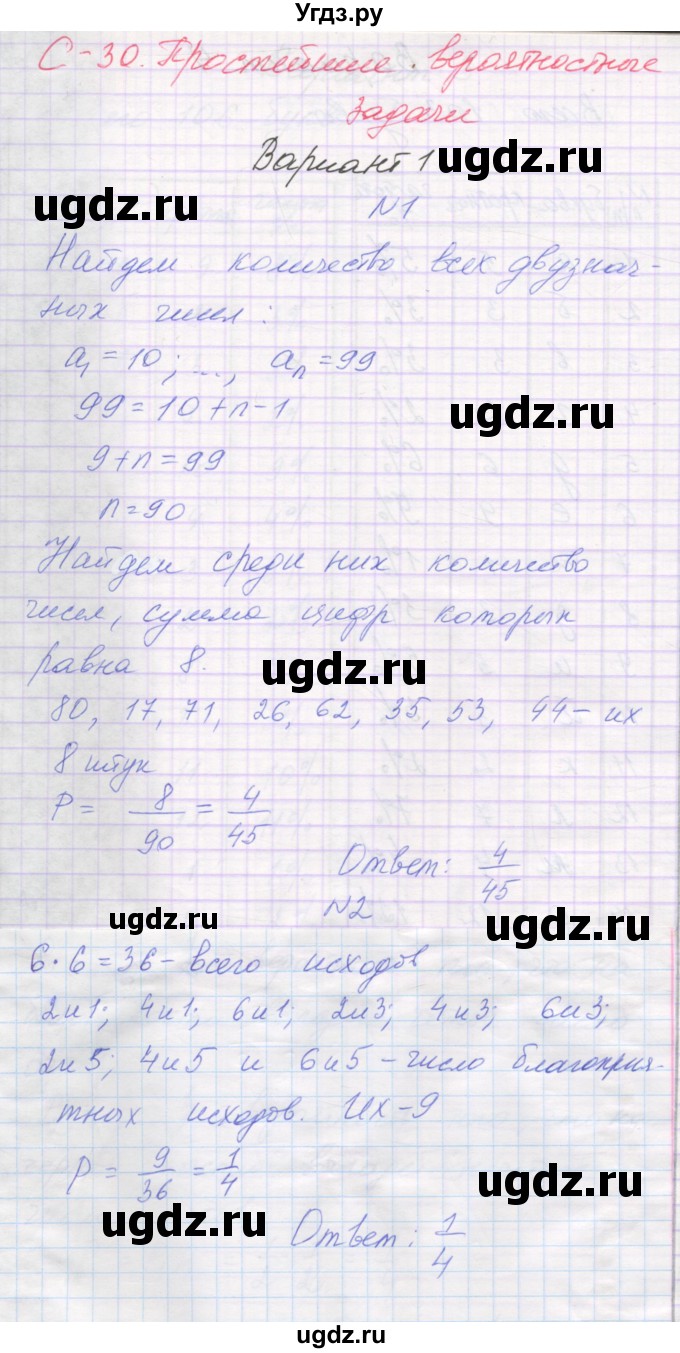 Угдз.ру
С-30. Простейшие вероятностные
задачи
Вариант 1
ugdz.ru
ugdz.ru
N1
Найдем количество всех двузнач-
ных чисел:
a₁ = 10; ..., aₙ = 99
99 = 10 + n - 1
ugdz.ru
9 + n = 99
n = 90
Найдем среди них количество
чисел, сумма цифр которых
равна 8.
ugdz.ru
80, 17, 71, 26, 62, 35, 53, 44 - их
8 штук
P = 8/90 = 4/45
Ответ: 4/45
ugdz.ru
N2
ugdz.ru
6 · 6 = 36 - всего исходов
2и1; 4и1; 6и1; 2и3; 4и3; 6и3;
2и5; 4и5 и 6и5 - число благоприя-
тных исходов. Их - 9
P = 9/36 = 1/4
ugdz.ru
ugdz.ru
Ответ: 1/4
ugdz.ru